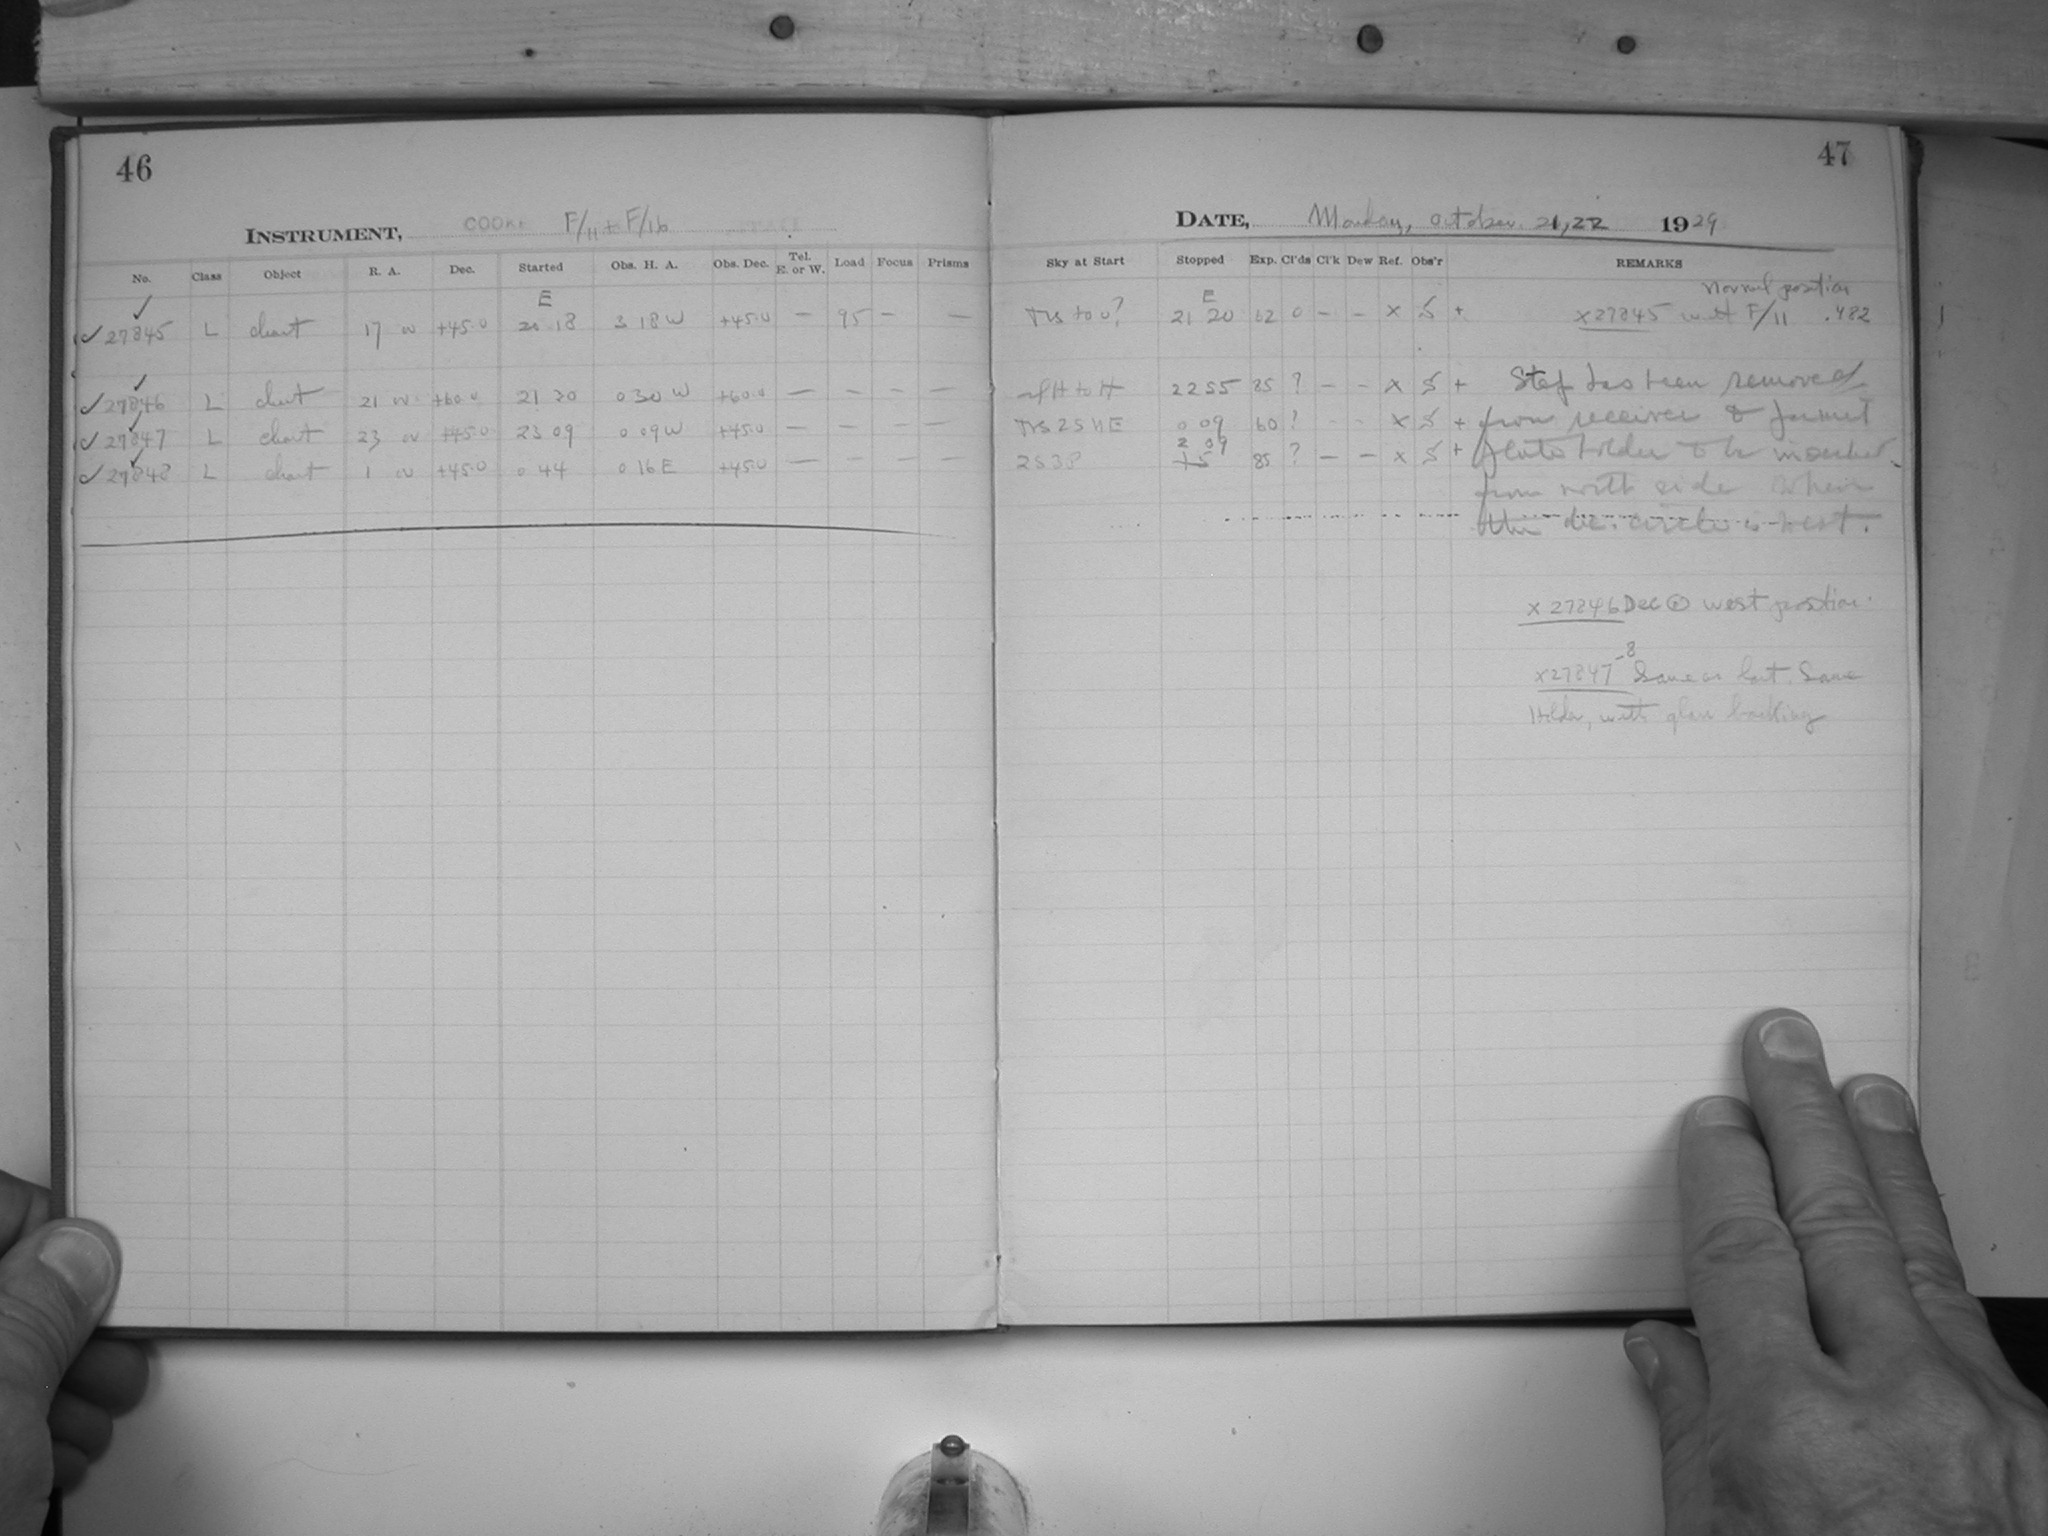 46
INSTRUMENT, COOKE F/11 to F/16
No. Class Object R. A. Dec. Started Obs. H. A. Obs. Dec. Tel. E. or W. Load Focus Prisms
E
27845 L chart 17 00 +45.0 20 18 3 18 W +45.0 — 95 — —
27846 L chart 21 00 +60.0 21 30 0 30 W +60.0 — — — —
27847 L chart 23 00 +45.0 23 09 0 09 W +45.0 — — — —
27848 L chart 1 00 +45.0 0 44 0 16 E +45.0 — — — —
47
DATE, Monday, October 21, 22 1929
Sky at Start Stopped Exp. Cl'ds Cl'k Dew Ref. Obs'r REMARKS
E normal position
21 20 62 0 – – x S + x27845 with F/11 .482
22 55 85 ? – – x S + Stop has been removed
0 09 60 ? – – x S + from receiver & permit
2 09
2538 85 ? – – x S + plateholder to be inserted
from north side when
the dec. circle is west.
x 27846 Dec west position.
x27847-8 Same as last. Same
Holder, with glass backing